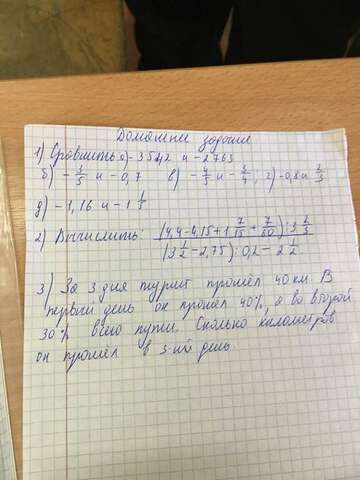 Домашнее задание
1) Сравнить: а) -3542 и -2763
б) -3/5 и -0,7 в) -4/5 и -3/4; г) -0,8 и 2/3
д) -1,16 и -1 1/5
2) Вычислить: (4,4-4,15+1 7/15+7/60):3 2/3
(3 1/2-2,75):0,2-2 1/2
3) За 3 дня турист прошёл 40 км. В
первый день он прошёл 40%, а во второй
30% всего пути. Сколько километров
он прошёл в 3-ий день.